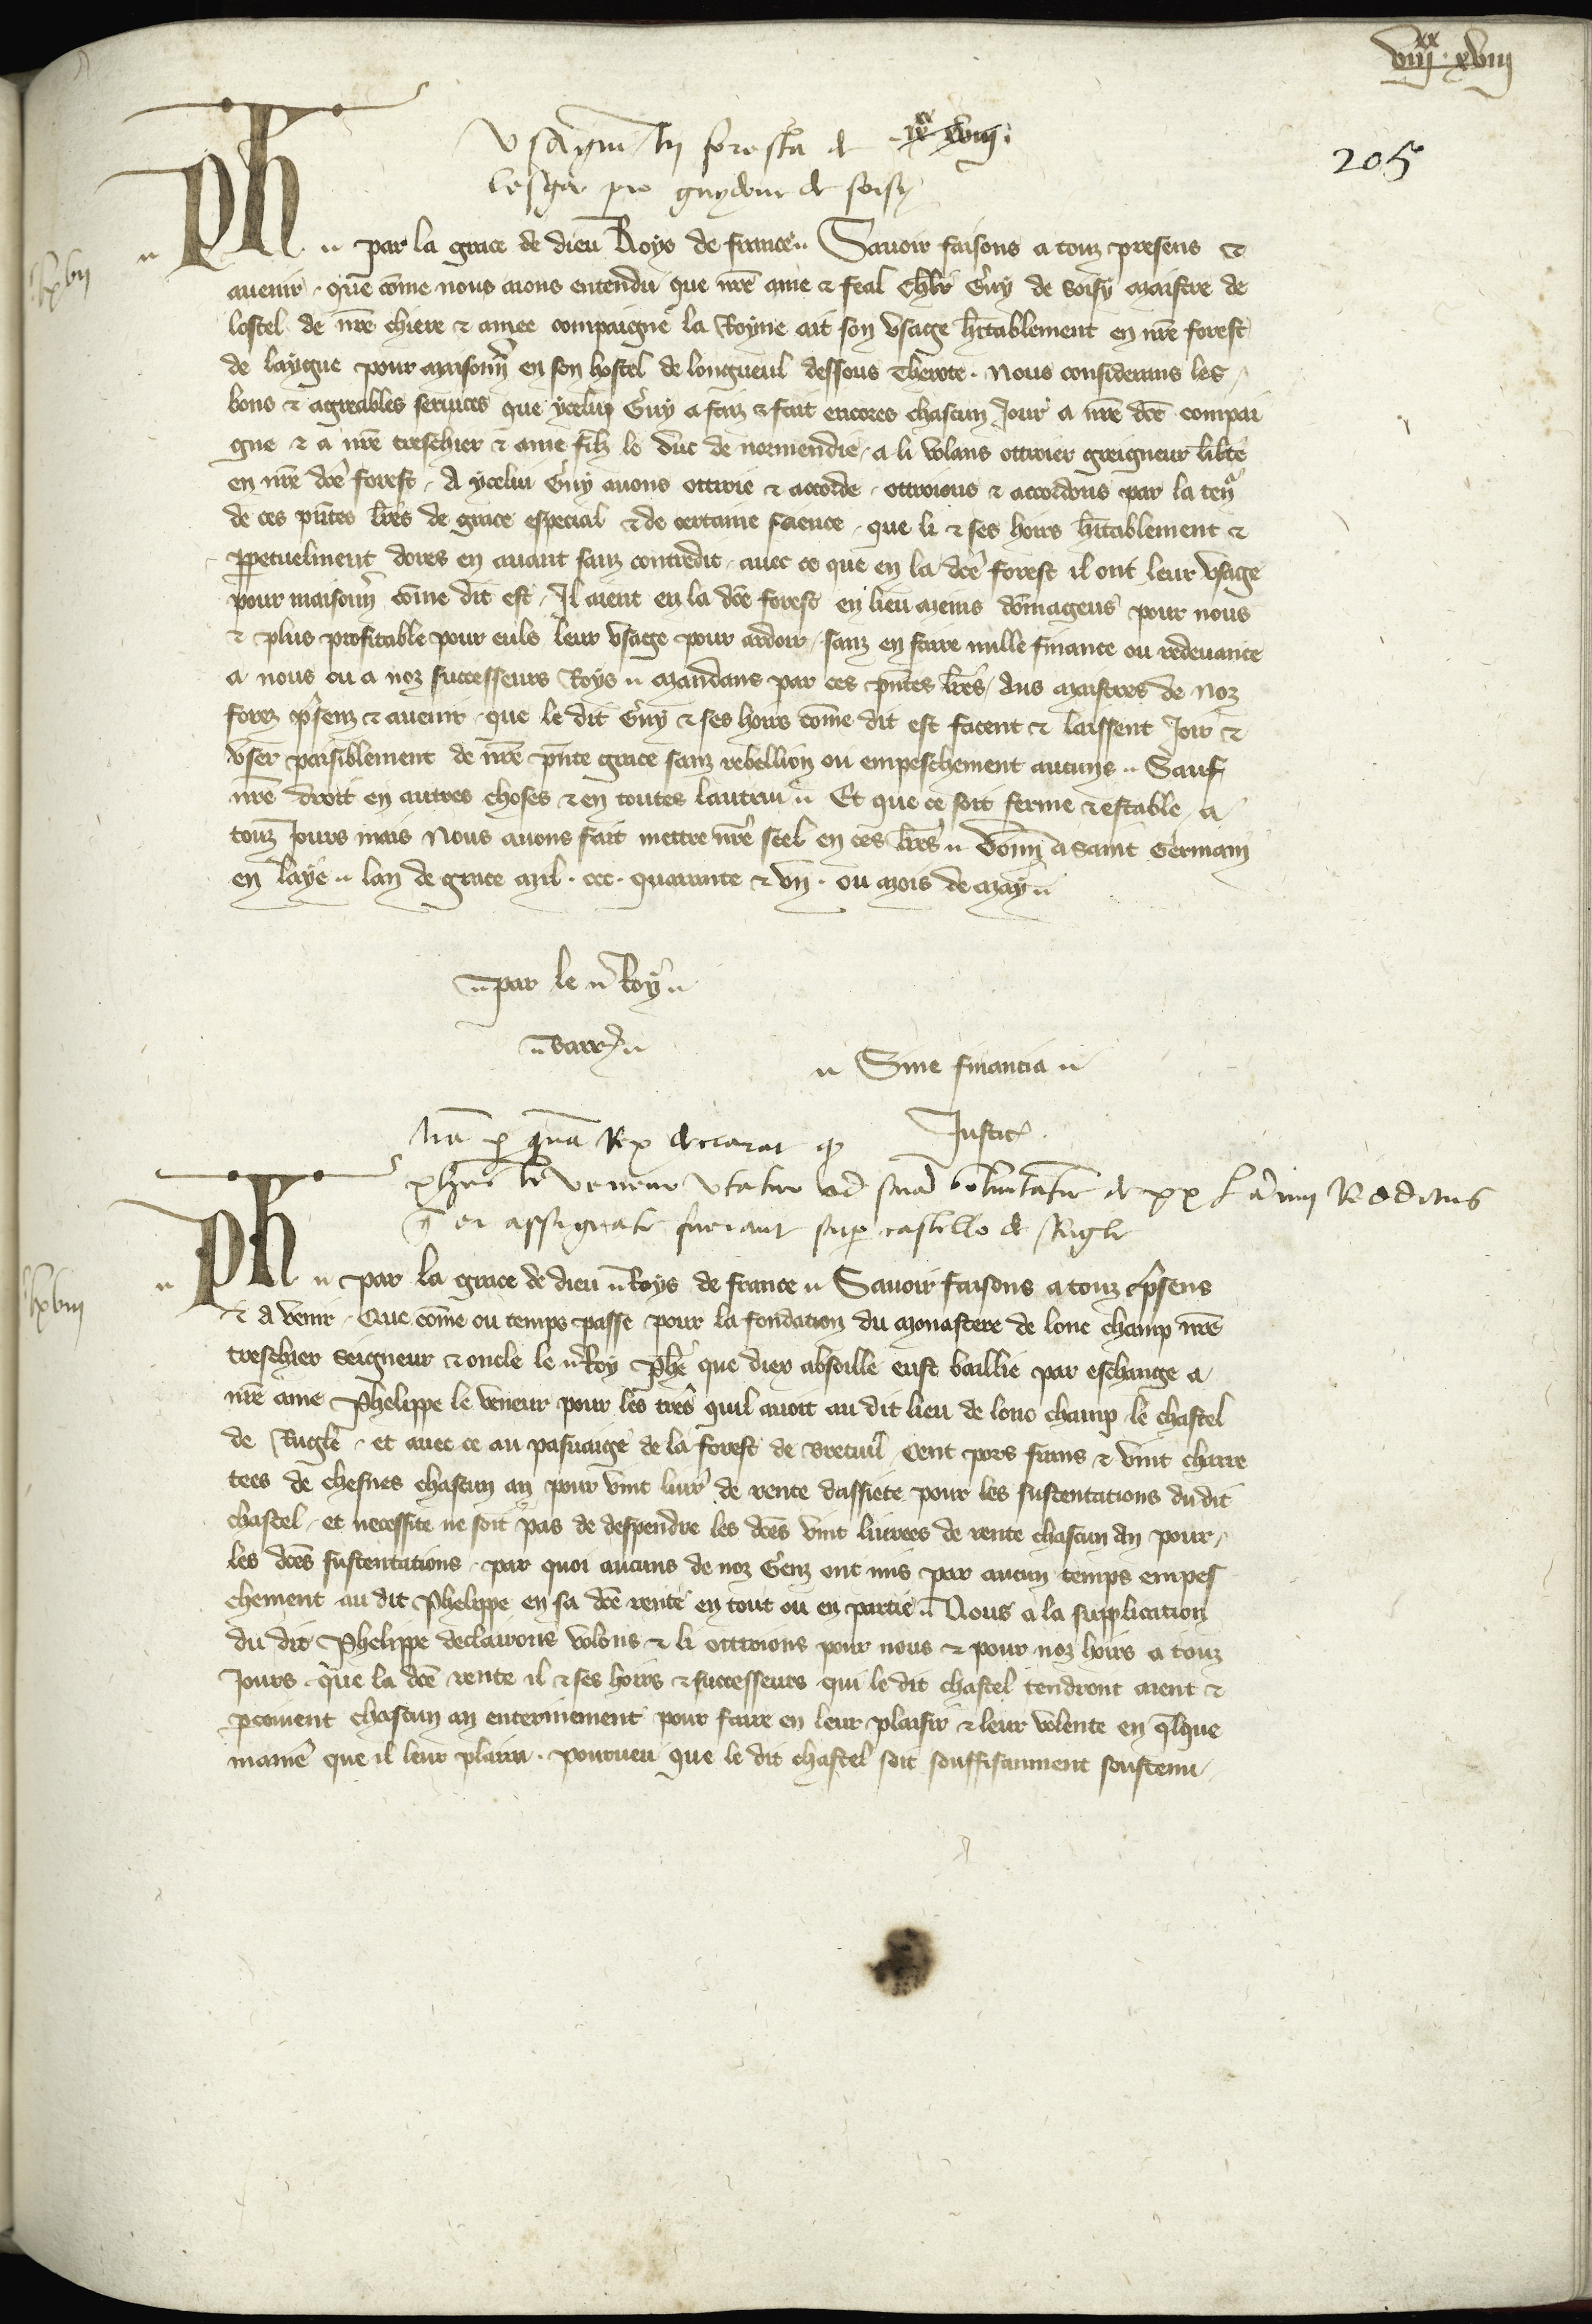 viijxx. xviij
Usagium in foresta de ixxx xviij.
205
lesgue pro guydone de soisy
lxvij
Ph par la grace de dieu Roys de france Savoir faisons a touz presens &
avenir que cōme nous aions entendu que nr̄e ame & feal chlr̄ Guy de Soisy maistre de
lostel de nr̄e chiere & amee compaigne la Royne ait son usage hr̄itablement en nr̄e forest
de laygue pour maisonn̄ en son hostel de longueul dessous therote. Nous considerans les
bons & agreables services que ycelui Guy a faiz & fait encores chascun Jour a nr̄e dcē compai
gne & a nr̄e treschier & ame filz le duc de normendie, a li volans ottroier greigneur libte
en nr̄e dcē forest, A ycelui Guy avons ottroie & accorde, ottroions & accordons par la ten
de ces pn̄tes lrēs de grace especial & de certaine science, que li & ses hoirs hr̄itablement &
ppetuelment dores en avant sanz contredit, avec ce que en la dcē forest il ont leur usage
pour maisonn̄ cōme dit est, Il aient en la dcē forest en lieu meins dōmageus pour nous
& plus profitable pour euls leur usage pour ardoir, sanz en faire nulle finance ou redevance
a nous ou a noz successeurs Roys Mandans par ces pn̄tes lrēs, Aus maistres de Noz
forez psenz & avenir que le dit Guy & ses hoirs cōme dit est facent & laissent Joir &
user paisiblement de nr̄e pn̄te grace sanz rebellion ou empeschement aucuns Sauf
nr̄e droit en autres choses & en toutes lautrui Et que ce soit ferme & estable a
touz Jours mais Nous avons fait mettre nr̄e scel en ces lrēs Donn̄ a Saint Germain
en laye lan de grace mil. ccc. quarante & vn. ou mois de may
par le Roy
Barr̄
Sine financia
Justic̄
lr̄a p quā Rex declarat q
phūs le veneur utatur ad suā voluntatē de xx l annui Redditus
ei assignate fuerant sup castello de Rugle
lxviij
Ph par la grace de dieu Roys de france Savoir faisons a touz psens
& a venir, Que cōme ou temps passe pour la fondation du monastere de lonc champ nr̄e
treschier seigneur & oncle le Roy Phē que diex absoille eust baillie par eschange a
nr̄e ame Phelippe le veneur pour les trēs quil avoit au dit lieu de lonc champ le chastel
de Rugle, et avec ce au pasnaige de la forest de Bretuil Cent pors frans & vint charre
tees de chesnes chascun an pour vint livr de rente dassiete pour les sustentations du dit
chastel, et necessite ne soit pas de despendre les dcēs vint livrees de rente chascun an pour
les dcēs sustentations, par quoi aucuns de noz Genz ont mis par aucun temps empes
chement au dit Phelippe en sa dcē rente en tout ou en partie Nous a la supplication
du dit Phelippe declairons volons & li ottroions pour nous & pour noz hoirs a touz
Jours que la dcē rente il & ses hoirs & successeurs qui le dit chastel tendront aient &
pcoivent chascun an enterinement pour faire en leur plaisir & leur volente en qlque
maniē que il leur plaira. pourveu que le dit chastel soit souffisanment soustenu